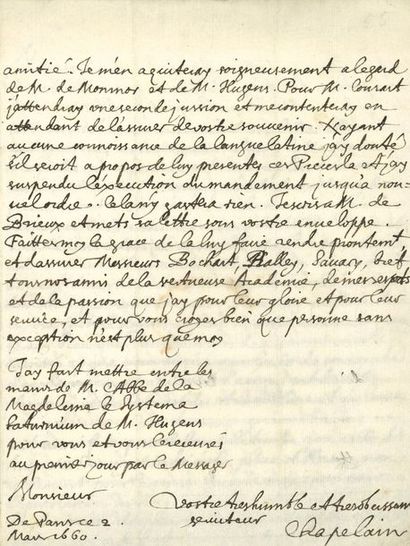 amitié. Je m'en aquiteray soigneusement a legard
de M. de Monmor et de M. Hugens. Pour M. Conrart
j'attendray une seconde jussion et me contenteray en
attendant de l'assurer de vostre souvenir. N'ayant
aucune connoissance de la langue latine j'ay douté
s'il seroit a propos de luy presenter ces Pieces la et j'ay
suspendu l'execution du mandement jusqu'a nou-
uel ordre. Cela ny gastera rien. J'escris a M. de
Brieux et mets sa lettre sous vostre enveloppe.
Faittes moy la grace de la luy faire rendre prontemt
et d'assurer Messieurs Bochart, Halley, Savary, bref
tous nos amis de la vertueuse Academie, de mes respets
et de la passion que j'ay pour leur gloire et pour leur
service, et pour vous croyes bien que personne sans
exception n'est plus que moy
J'ay fait mettre entre les
mains de M. l'Abbe de la
Magdeleine le Systeme
Saturnium de M. Hugens
pour vous et vous l'aures
au premier jour par le Messager
Monsieur
Vostre tres humble et tres obeissant
serviteur
De Paris ce 2.
Mars 1660.
Chapelain